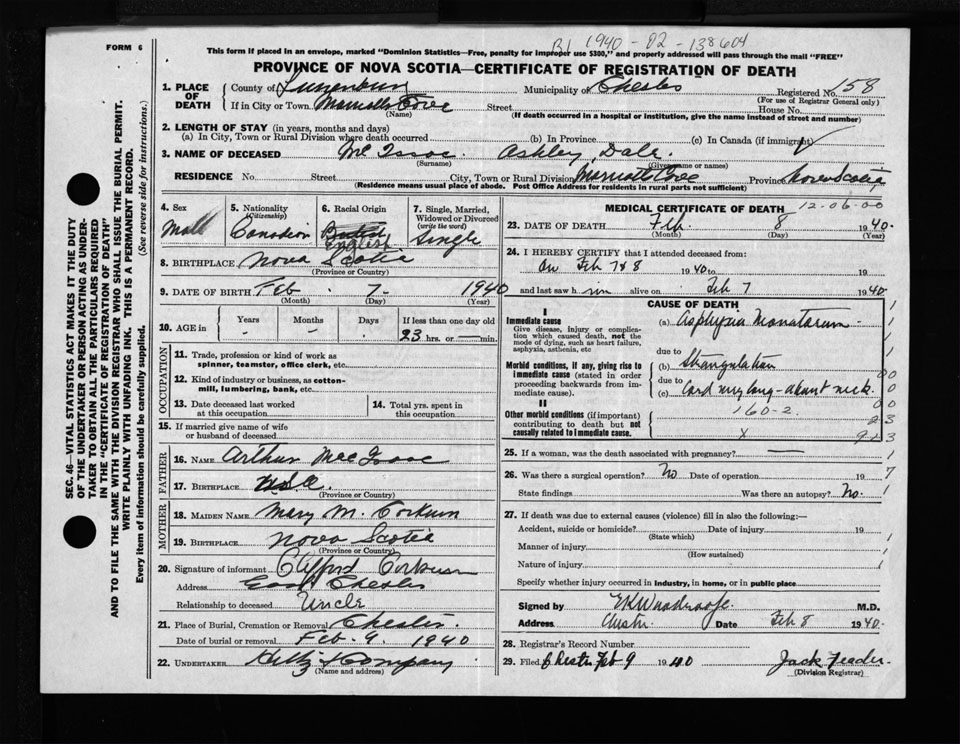 B1 1940-02-138604
FORM 6
This form if placed in an envelope, marked "Dominion Statistics—Free, penalty for improper use $300," and properly addressed will pass through the mail "FREE"
PROVINCE OF NOVA SCOTIA—CERTIFICATE OF REGISTRATION OF DEATH
SEC. 46—VITAL STATISTICS ACT MAKES IT THE DUTY
OF THE UNDERTAKER OR PERSON ACTING AS UNDER-
TAKER TO OBTAIN ALL THE PARTICULARS REQUIRED
IN THE "CERTIFICATE OF REGISTRATION OF DEATH"
AND TO FILE THE SAME WITH THE DIVISION REGISTRAR WHO SHALL ISSUE THE BURIAL PERMIT.
WRITE PLAINLY WITH UNFADING INK. THIS IS A PERMANENT RECORD.
Every item of information should be carefully supplied.
(See reverse side for instructions.)
1. PLACE OF DEATH County of Lunenburg Municipality of Chester Registered No. 158
(For use of Registrar General only)
If in City or Town Marriotts Cove Street House No.
(Name) (If death occurred in a hospital or institution, give the name instead of street and number)
2. LENGTH OF STAY (in years, months and days)
(a) In City, Town or Rural Division where death occurred (b) In Province (c) In Canada (if immigrant)
3. NAME OF DECEASED Mc Isaac Ashley, Dale.
(Surname) (Given name or names)
RESIDENCE No. Street City, Town or Rural Division Marriotts Cove Province Nova Scotia
(Residence means usual place of abode. Post Office Address for residents in rural parts not sufficient)
4. Sex Male
5. Nationality (Citizenship) Canadian
6. Racial Origin British English
7. Single, Married, Widowed or Divorced (write the word) Single
8. BIRTHPLACE Nova Scotia
(Province or Country)
9. DATE OF BIRTH Feb 7 1940
(Month) (Day) (Year)
10. AGE in Years Months Days If less than one day old
23 hrs. or min.
OCCUPATION
11. Trade, profession or kind of work as spinner, teamster, office clerk, etc.
12. Kind of industry or business, as cotton-mill, lumbering, bank, etc.
13. Date deceased last worked at this occupation
14. Total yrs. spent in this occupation
15. If married give name of wife or husband of deceased
FATHER
16. NAME Arthur Mac Isaac
17. BIRTHPLACE U.S.A.
(Province or Country)
MOTHER
18. MAIDEN NAME Mary M. Corkum
19. BIRTHPLACE Nova Scotia
(Province or Country)
20. Signature of informant Clifford Corkum
Address East Chester
Relationship to deceased Uncle
21. Place of Burial, Cremation or Removal Chester
Date of burial or removal Feb. 9. 1940
22. UNDERTAKER & Company
(Name and address)
MEDICAL CERTIFICATE OF DEATH 12-06-00
23. DATE OF DEATH Feb. 8 1940.
(Month) (Day) (Year)
24. I HEREBY CERTIFY that I attended deceased from:
on Feb 7 & 8 1940 to 19
and last saw him alive on Feb 7 1940.
CAUSE OF DEATH
I
Immediate cause
Give disease, injury or complication which caused death, not the mode of dying, such as heart failure, asphyxia, asthenia, etc
(a) Asphyxia Neonatorum
due to
Morbid conditions, if any, giving rise to immediate cause (stated in order proceeding backwards from immediate cause).
(b) Strangulation
due to
(c) Cord very long - about neck.
II
Other morbid conditions (if important) contributing to death but not causally related to immediate cause.
160-2.
x
25. If a woman, was the death associated with pregnancy?
26. Was there a surgical operation? No Date of operation 19
State findings Was there an autopsy? No.
27. If death was due to external causes (violence) fill in also the following:—
Accident, suicide or homicide? Date of injury 19
(State which)
Manner of injury
(How sustained)
Nature of injury
Specify whether injury occurred in industry, in home, or in public place
Signed by M.D.
Address Chester Date Feb 8 1940.
28. Registrar's Record Number
29. Filed Chester Feb 9 1940 Jack
(Division Registrar)